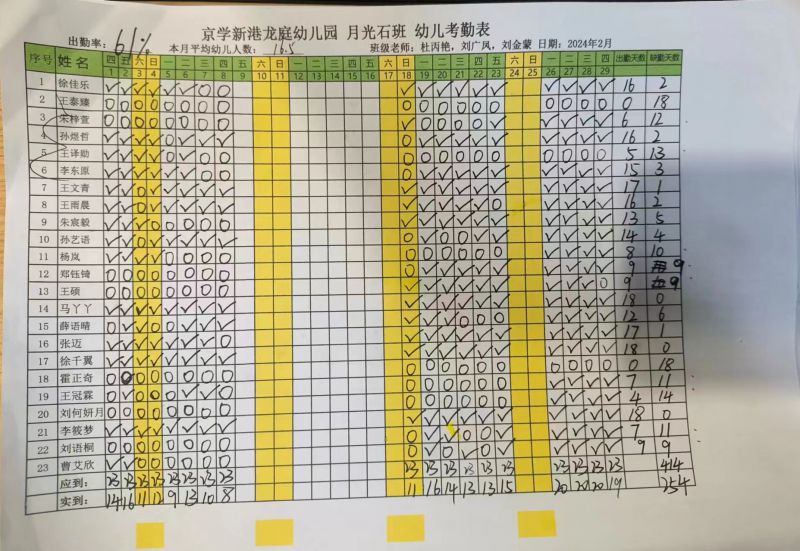 京学新港龙庭幼儿园 月光石班 幼儿考勤表
出勤率: 61% 本月平均幼儿人数: 16.5 班级老师: 杜丙艳, 刘广凤, 刘金蒙 日期: 2024年2月
序号 姓名 四 五 六 日 一 二 三 四 六 日 六 日 一 二 三 四 五 六 日 一 二 三 四 出勤天数 缺勤天数
1 2 3 4 5 6 7 8 9 10 11 12 13 14 15 16 17 18 19 20 21 22 23 24 25 26 27 28 29
1 徐佳乐 16 2
2 王泰臻 0 18
3 朱梓萱 6 12
4 孙煜哲 16 2
5 王译勋 5 13
6 李东原 15 3
7 王文青 17 1
8 王雨晨 16 2
9 朱宸毅 13 5
10 孙艺语 14 4
11 杨岚 8 10
12 郑钰锜 9 9
13 王硕 9 9
14 马丫丫 18 0
15 薛语晴 12 6
16 张迈 17 1
17 徐千翼 18 0
18 霍正奇 0 18
19 王冠霖 7 11
20 刘何妍月 4 14
21 李筱梦 18 0
22 刘语桐 7 11
23 曹艾欣 9 9
应到: 23 23 23 23 23 23 23 23 23 23 23 23 23 23 23 23 23 23 414
实到: 14 16 11 12 9 13 10 8 11 16 14 13 13 15 20 20 20 19 254